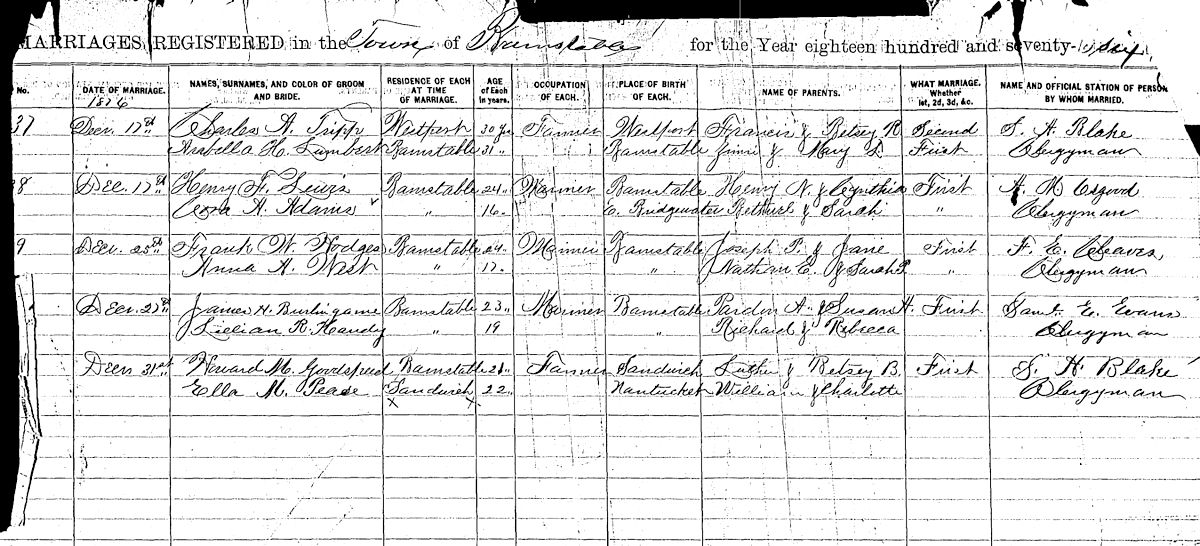 MARRIAGES REGISTERED in the Town of Barnstable for the Year eighteen hundred and seventy-six.
No. DATE OF MARRIAGE. NAMES, SURNAMES, AND COLOR OF GROOM AND BRIDE. RESIDENCE OF EACH AT TIME OF MARRIAGE. AGE of Each in years. OCCUPATION OF EACH. PLACE OF BIRTH OF EACH. NAME OF PARENTS. WHAT MARRIAGE. Whether 1st, 2d, 3d, &c. NAME AND OFFICIAL STATION OF PERSON BY WHOM MARRIED.
1876
37 Decr. 17th Charles A. Tripp Westport 30 Farmer Westport Francis & Betsey R Second S. H. Blake
Arabella H. Lambert Barnstable 31 " Barnstable & Mary First Clergyman
8 Dec. 17th Henry F. Lewis Barnstable 24 " Mariner Barnstable Henry N. & Cynthia First A. M. Osgood
A. Adams " 16 E. Bridgewater & Sarah " Clergyman
9 Dec. 25th Frank W. Hodges Barnstable 24 " Mariner Barnstable Joseph P. & Jane First F. E. Cleaves
Anna A. West " 17 " Nathan E. & Sarah P. " Clergyman
Decr. James H. Burlingame Barnstable 23 " Mariner Barnstable A. & Susan H. First Saml. E. Evans
Lillian R. Handy " 19 " Richard & Rebecca Clergyman
Decr. 31st Howard M. Goodspeed Barnstable Farmer Sandwich Luther & Betsey B. First S. H. Blake
Ella M. Pease Sandwich 22 " Nantucket William & Charlotte Clergyman
x x